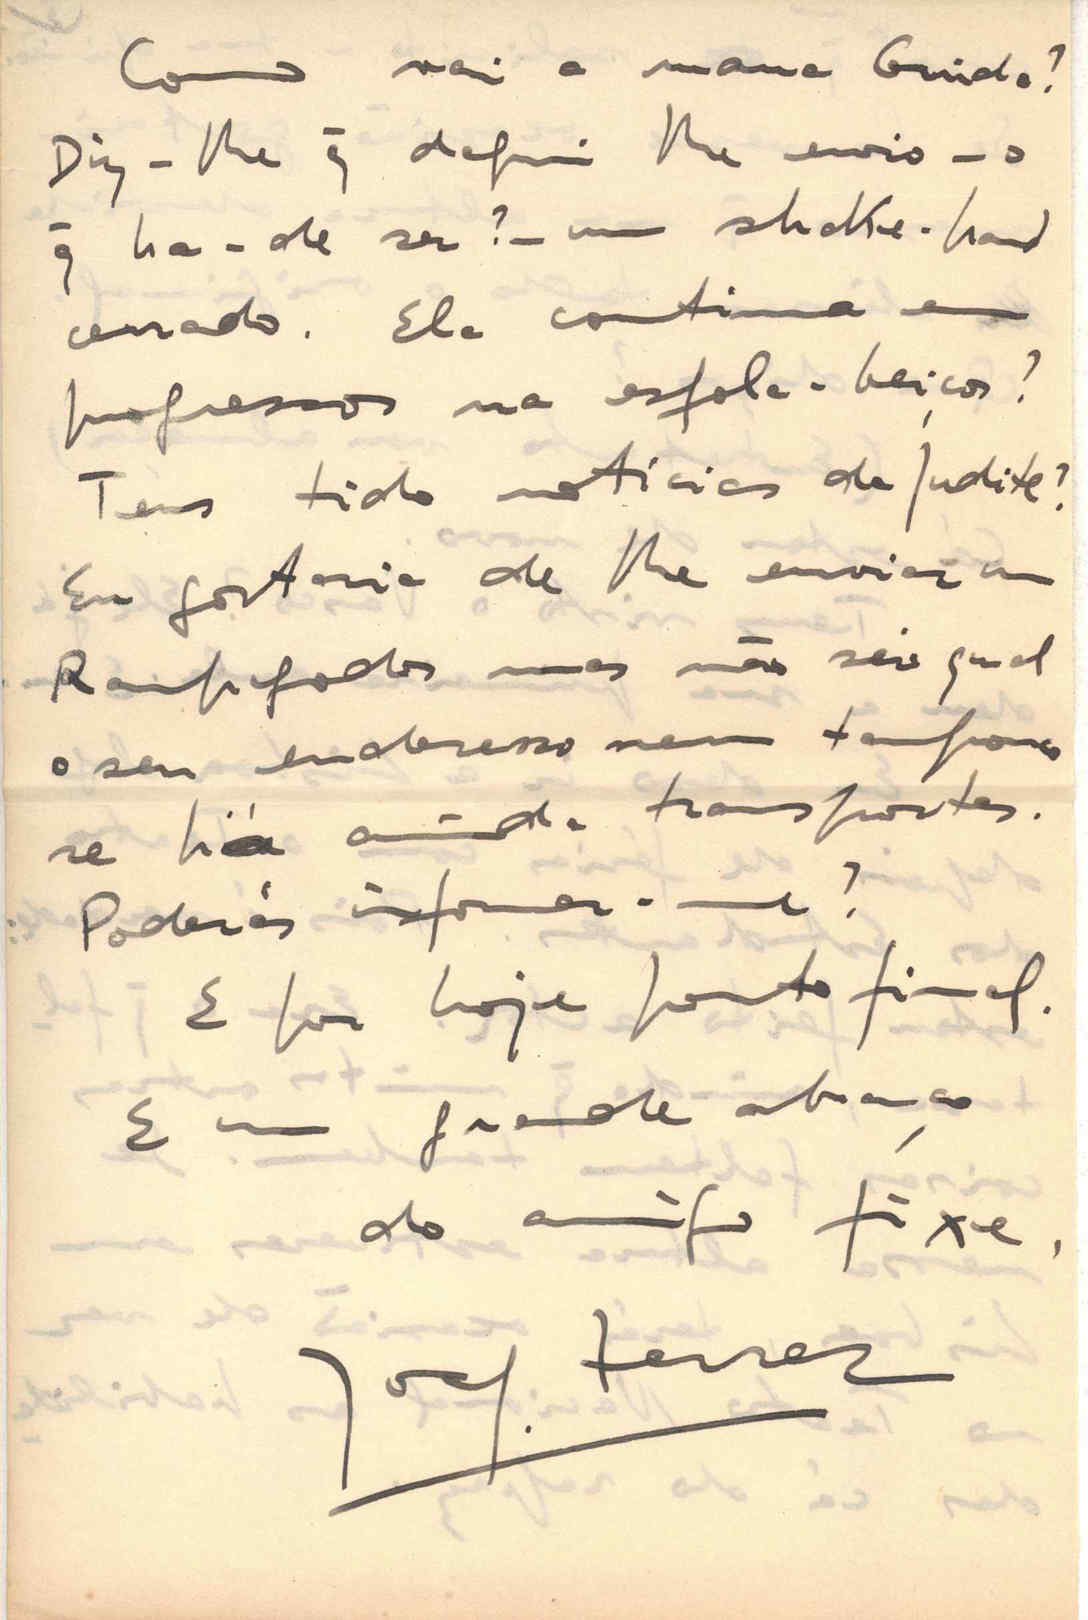 Como vai a mana Guida?
Diz-lhe q̄ daqui lhe envio - o
q̄ ha-de ser? - um shake-hand
cerrado. Ela continua em
progressos na esfola-beiços?
Tens tido noticias da Judite?
Eu gostaria de lhe enviar um
mas não sei qual
o seu enderesso nem tampouco
se há ainda transportes.
Poderás informar-me?
E por hoje ponto final.
E um grande abraço
do amigo fixe,
Ferrer